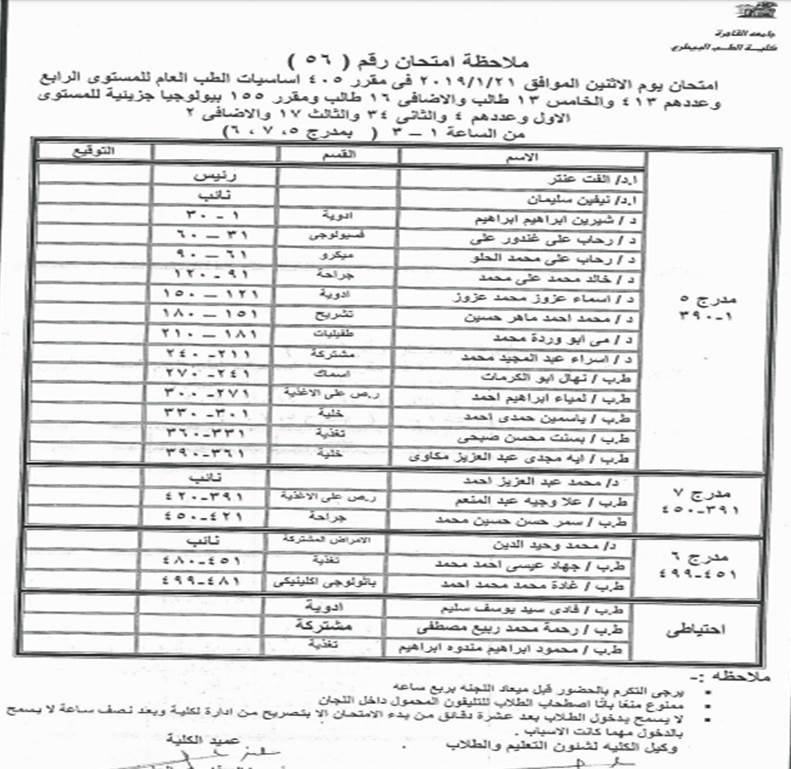 جامعة القاهرة
كلية الطب البيطرى
ملاحظة امتحان رقم ( ٥٦ )
امتحان يوم الاثنين الموافق ٢٠١٩/١/٢١ فى مقرر ٤٠٥ اساسيات الطب العام للمستوى الرابع
وعددهم ٤١٣ والخامس ١٣ طالب والاضافى ١٦ طالب ومقرر ١٥٥ بيولوجيا جزيئية للمستوى
الاول وعددهم ٤ والثانى ٣٤ والثالث ١٧ والاضافى ٢
من الساعة ١ – ٣ ( بمدرج ٥، ٧ ، ٦ )
الاسم القسم التوقيع
مدرج ٥
١-٣٩٠
ا.د/ الفت عنتر رئيس
ا.د/ نيفين سليمان نائب
د / شيرين ابراهيم ابراهيم ادوية ١ - ٣٠
د / رحاب على غندور على فسيولوجى ٣١ – ٦٠
د / رحاب على محمد الحلو ميكرو ٦١ – ٩٠
د / خالد محمد على محمد جراحة ٩١ - ١٢٠
د / اسماء عزوز محمد عزوز ادوية ١٢١ – ١٥٠
د / محمد احمد ماهر حسين تشريح ١٥١ – ١٨٠
د / مى ابو وردة محمد طفيليات ١٨١ – ٢١٠
د / اسراء عبد المجيد محمد مشتركة ٢١١- ٢٤٠
ط.ب / نهال ابو الكرمات اسماك ٢٤١- ٢٧٠
ط.ب / لمياء ابراهيم احمد ر.ص على الاغذية ٢٧١- ٣٠٠
ط.ب / ياسمين حمدى احمد خلية ٣٠١- ٣٣٠
ط.ب / بسنت محسن صبحى تغذية ٣٣١-٣٦٠
ط.ب / ايه مجدى عبد العزيز مكاوى خلية ٣٦١-٣٩٠
مدرج ٧
٣٩١-٤٥٠
د/ محمد عبد العزيز احمد نائب
ط.ب / علا وجيه عبد المنعم ر.ص على الاغذية ٣٩١-٤٢٠
ط.ب / سمر حسن حسين محمد جراحة ٤٢١-٤٥٠
مدرج ٦
٤٥١-٤٩٩
د/ محمد وحيد الدين الامراض المشتركة نائب
ط.ب / جهاد عيسى احمد محمد تغذية ٤٥١-٤٨٠
ط.ب / غادة محمد محمد احمد باثولوجى اكلينيكى ٤٨١-٤٩٩
احتياطى
ط.ب / فادى سيد يوسف سليم ادوية
ط.ب / رحمة محمد ربيع مصطفى مشتركة
ط.ب / محمود ابراهيم مندوه ابراهيم تغذية
ملاحظه :-
يرجى التكرم بالحضور قبل ميعاد اللجنه بربع ساعه
ممنوع منعا باتا اصطحاب الطلاب للتليفون المحمول داخل اللجان
لا يسمح بدخول الطلاب بعد عشرة دقائق من بدء الامتحان الا بتصريح من ادارة لكلية وبعد نصف ساعة لا يسمح
بالدخول مهما كانت الاسباب
وكيل الكليه لشئون التعليم والطلاب عميد الكلية